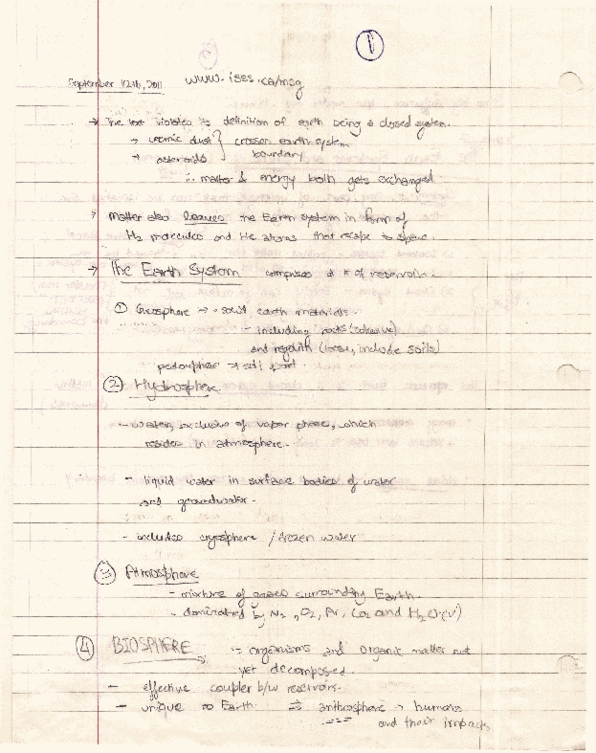 1
September 12th, 2011 www.ises.ca/msg
→ The text violates its definition of earth being a closed system.
→ cosmic dust } crosses earth system
→ asteroids } boundary
∴ matter & energy both gets exchanged
→ Matter also leaves the Earth system in form of
H2 molecules and He atoms that escape to space.
→ The Earth System comprises a # of reservoirs.
① Geosphere → solid earth materials.
- including rocks (cohesive)
and regolith (loose, include soils)
pedosphere → soil part.
② Hydrosphere
- water, exclusive of vapor phase, which
resides in atmosphere.
- liquid water in surface bodies of water
and groundwater.
- includes cryosphere / frozen water
③ Atmosphere
- mixture of gases surrounding Earth.
- dominated by N2, O2, Ar, CO2 and H2O(v)
④ BIOSPHERE - organisms and organic matter not
yet decomposed.
- effective coupler b/w reservoirs.
- unique to Earth ⇒ anthrosphere → humans
and their impacts